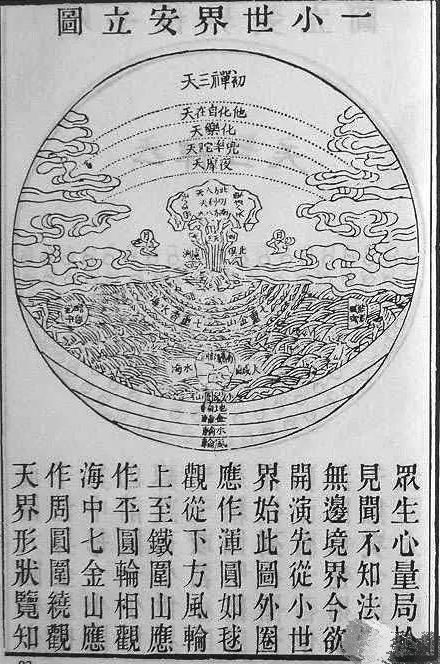 一小世界安立圖
初禪三天
他化自在天
化樂天
兜率陀天
夜摩天
日
月
大鹹
水海
地輪
金輪
水輪
風輪
眾生心量局於
見聞不知法
無邊境界今欲
開演先從小世
界始此圖外圈
應作渾圓如毬
觀從下方風輪
上至鐵圍山應
作平圓輪相觀
海中七金山應
作周圓圍繞觀
天界形狀覽知